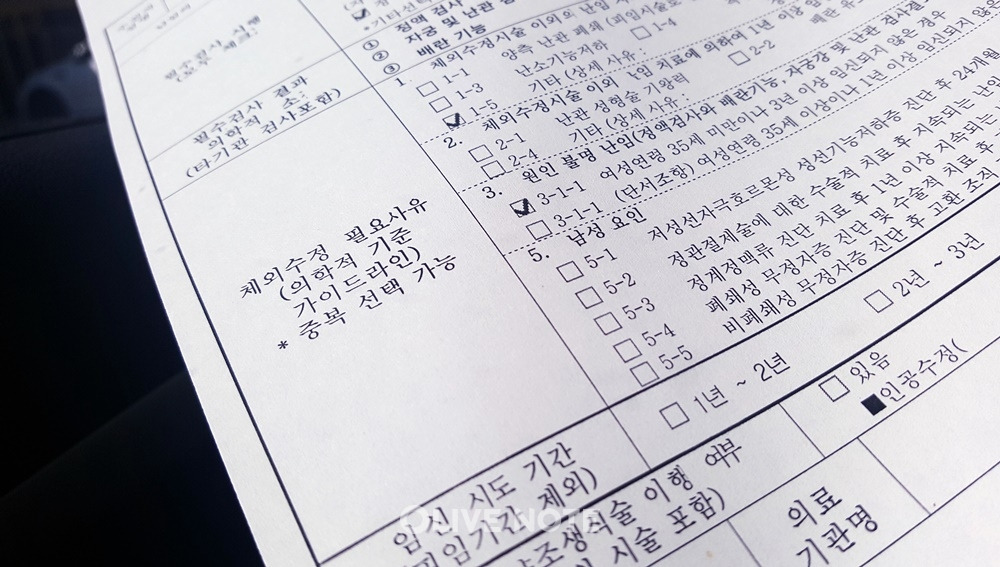 필수검사 결과
의학적 소
(타기관 검사포함)
① 정액 검사
② 자궁 및 난관
③ 배란 기능
1. 체외수정시술 이외의 난임
□ 1-1 양측 난관 폐쇄(피임시술로
□ 1-3 난소기능저하 □ 1-4
☑ 1-5 기타(상세 사유:
2. 체외수정시술 이외 난임 치료에 의하여 1년 이상 임
□ 2-1 난관 성형술 기왕력 □ 2-2
□ 2-4 기타(상세 사유:
3. 원인 불명 난임(정액검사와 배란기능, 자궁강 및 난관 검사결
☑ 3-1-1 여성연령 35세 미만이나 3년 이상 임신되지 않은 경우
□ 3-1-1 (단서조항) 여성연령 35세 이상이나 1년 이상 임신되지 않은
5. 남성 요인
□ 5-1 저성선자극호르몬성 성선기능저하증 진단 후 24개월
□ 5-2 정관절제술에 대한 수술적 치료 후 지속되는 난임
□ 5-3 정계정맥류 진단 치료 후 1년 이상 지속되는
□ 5-4 폐쇄성 무정자증 진단 및 수술적 치료 후
□ 5-5 비폐쇄성 무정자증 진단 후 고환 조직
체외수정 필요사유
(의학적 기준
가이드라인)
* 중복 선택 가능
임신 시도 기간
피임기간 제외)
□ 1년 ~ 2년 □ 2년 ~ 3년
조생식술 이행 여부
시술 포함)
□ 있음
■인공수정(
의료
기관명
OLIVE NOTE